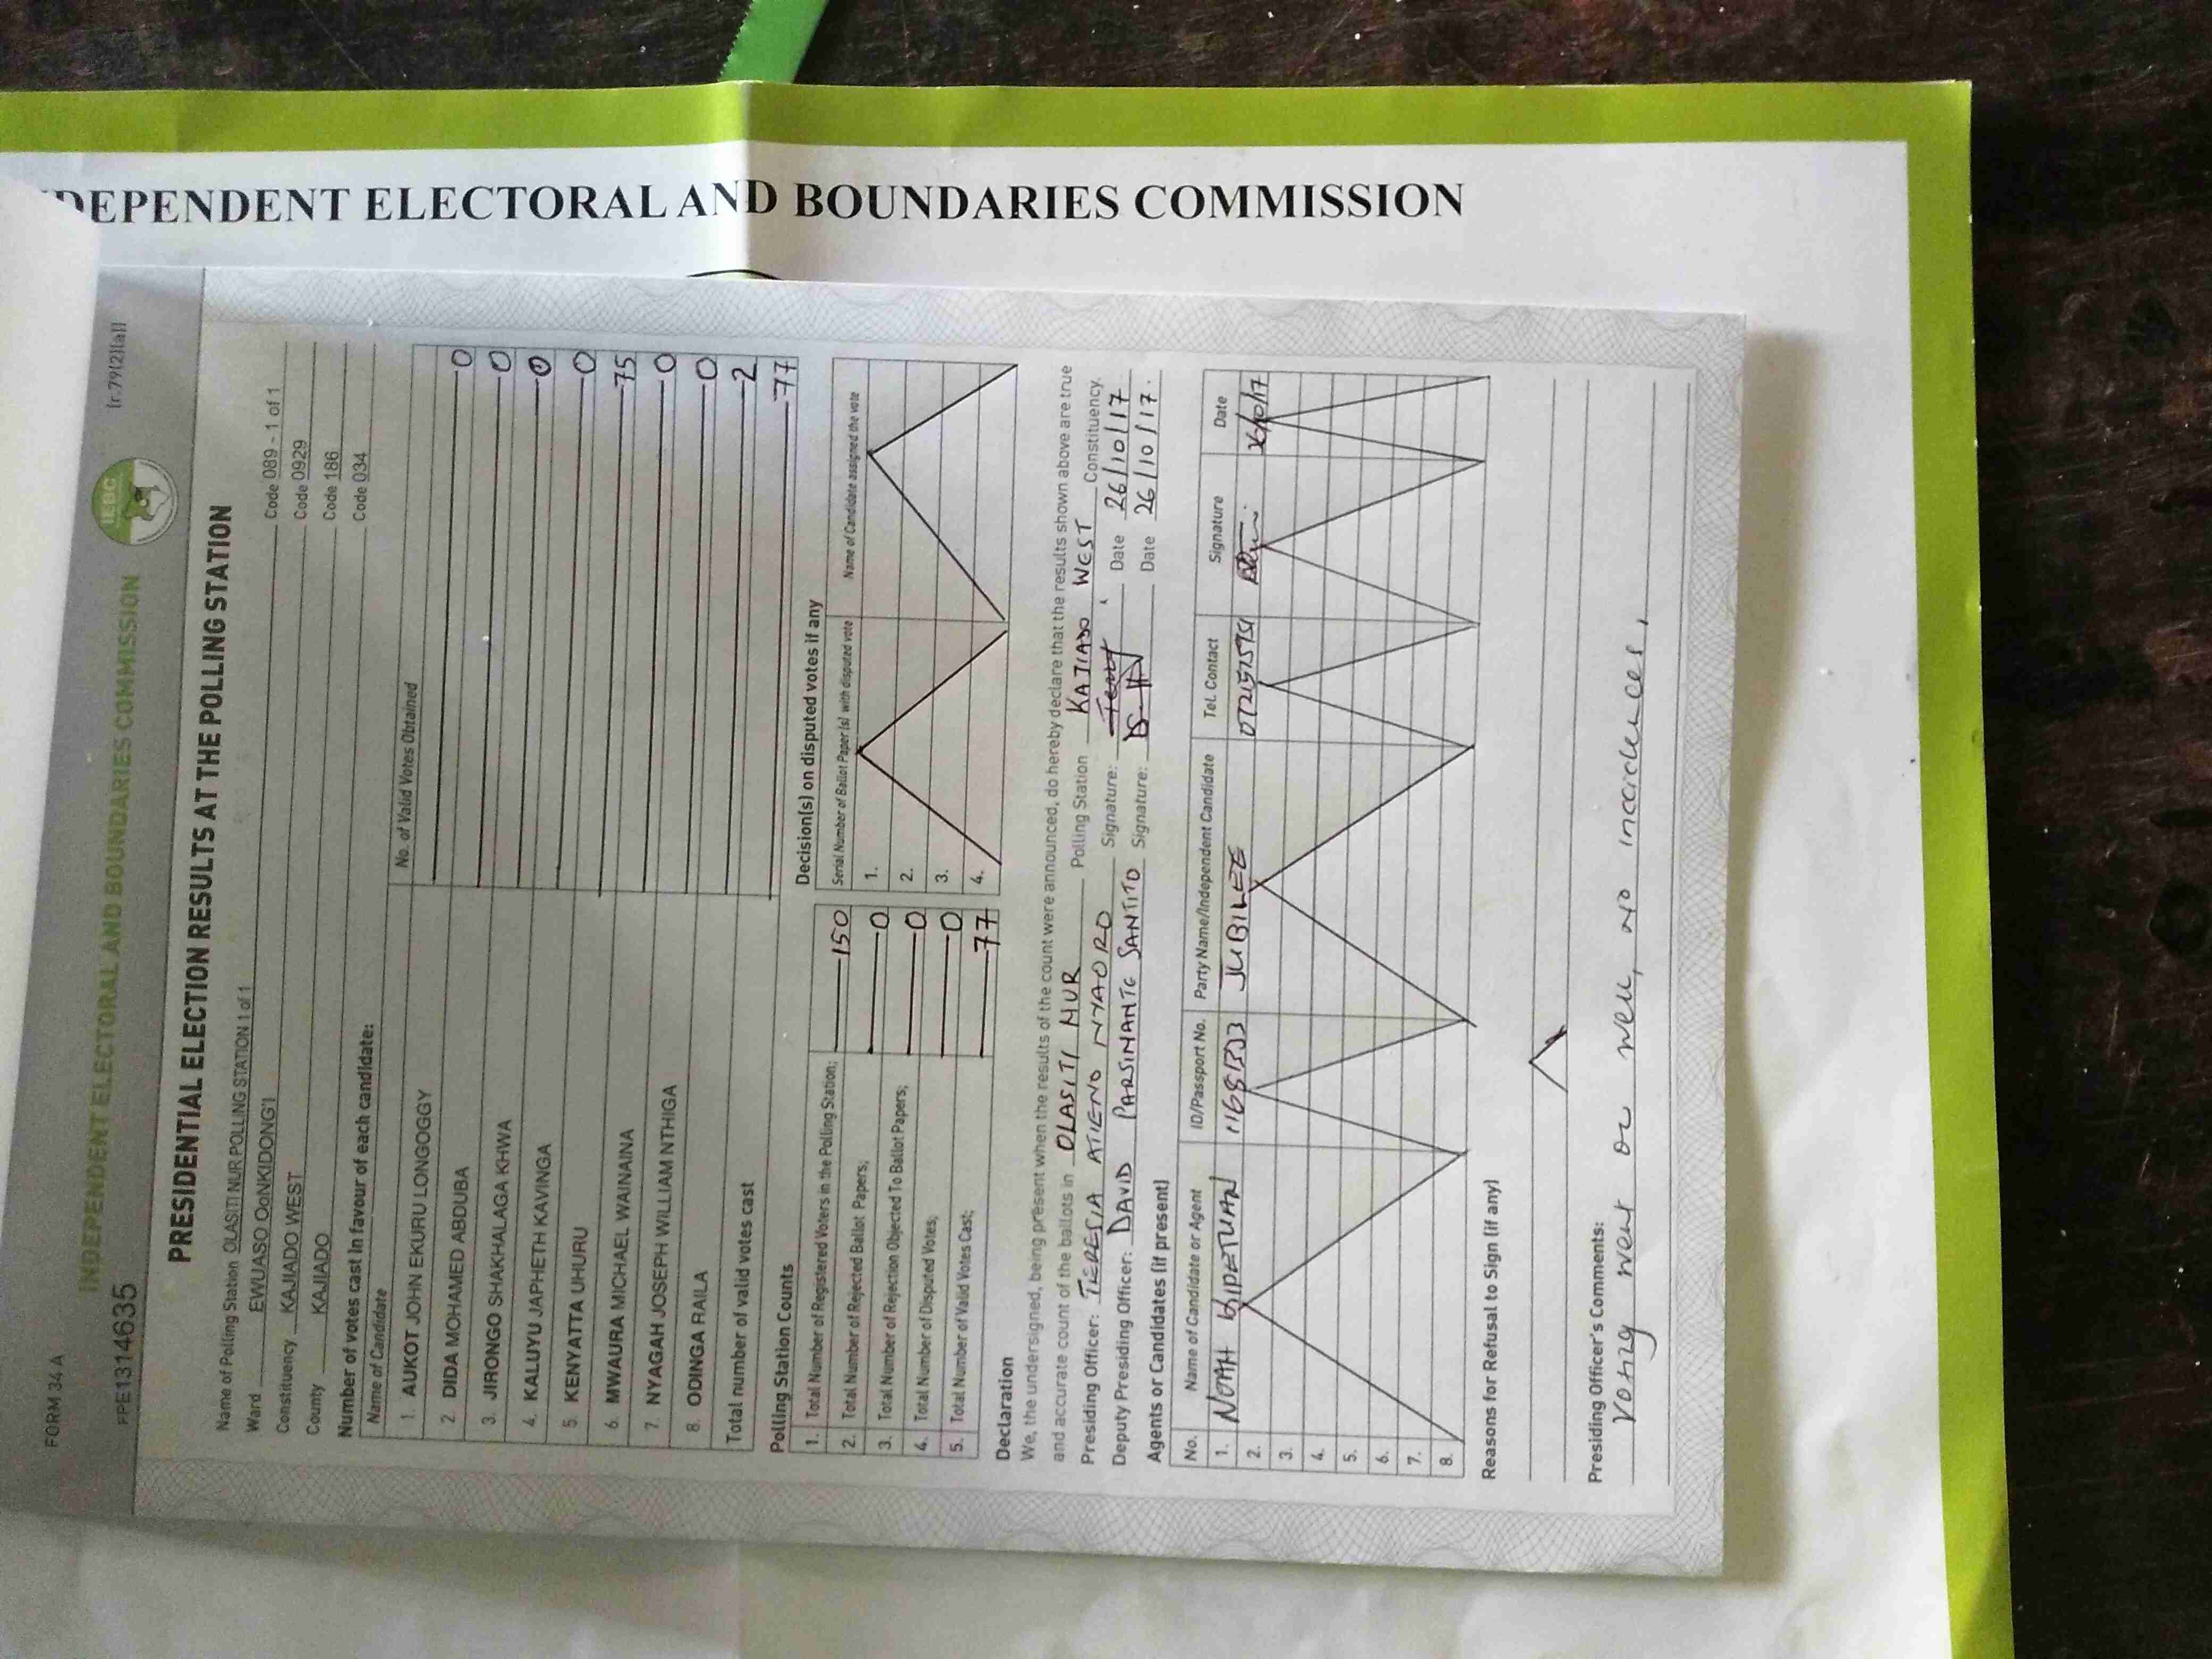 INDEPENDENT ELECTORAL AND BOUNDARIES COMMISSION
FORM 34 A
[r.79(2)(a)]
INDEPENDENT ELECTORAL AND BOUNDARIES COMMISSION
IEBC
PPE1314635
PRESIDENTIAL ELECTION RESULTS AT THE POLLING STATION
Name of Polling Station OLASITI NUR POLLING STATION 1 of 1 Code 089 - 1 of 1
Ward EWUASO OoNKIDONG'I Code 0929
Constituency KAJIADO WEST Code 186
County KAJIADO Code 034
Number of votes cast in favour of each candidate:
Name of Candidate No. of Valid Votes Obtained
1. AUKOT JOHN EKURU LONGOGGY 0
2 DIDA MOHAMED ABDUBA 0
3. JIRONGO SHAKHALAGA KHWA 0
4. KALUYU JAPHETH KAVINGA 0
5. KENYATTA UHURU 75
6 MWAURA MICHAEL WAINAINA 0
7. NYAGAH JOSEPH WILLIAM NTHIGA 0
8. ODINGA RAILA 2
Total number of valid votes cast 77
Polling Station Counts
1. Total Number of Registered Voters in the Polling Station; 150
2. Total Number of Rejected Ballot Papers; 0
3. Total Number of Rejection Objected To Ballot Papers; 0
4. Total Number of Disputed Votes; 0
5. Total Number of Valid Votes Cast; 77
Decision(s) on disputed votes if any
Serial Number of Ballot Paper (s) with disputed vote Name of Candidate assigned the vote
1.
2.
3.
4.
Declaration
We, the undersigned, being present when the results of the count were announced, do hereby declare that the results shown above are true
and accurate count of the ballots in OLASITI NUR Polling Station KAJIADO WEST Constituency.
Presiding Officer: TERESIA ATIENO NYAORO Signature: Date 26/10/17
Deputy Presiding Officer: DAVID PARSIMANTE SANTITO Signature: Date 26/10/17.
Agents or Candidates (if present)
No. Name of Candidate or Agent ID/Passport No. Party Name/Independent Candidate Tel. Contact Signature Date
1. NOAH JUBILEE 26/10/17
2.
3.
4.
5.
6.
7.
8.
Reasons for Refusal to Sign (if any)
Presiding Officer's Comments:
Voting went on well, no inccidences.